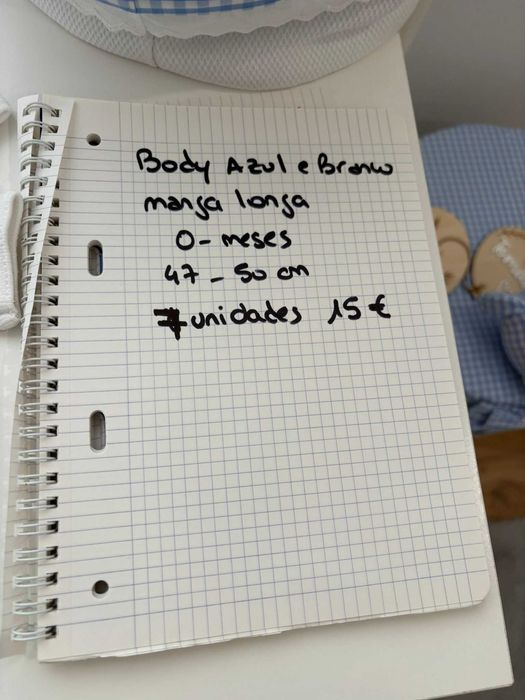 Body Azul e Branco
manga longa
0 - meses
47 - 50 cm
7 unidades 15 €